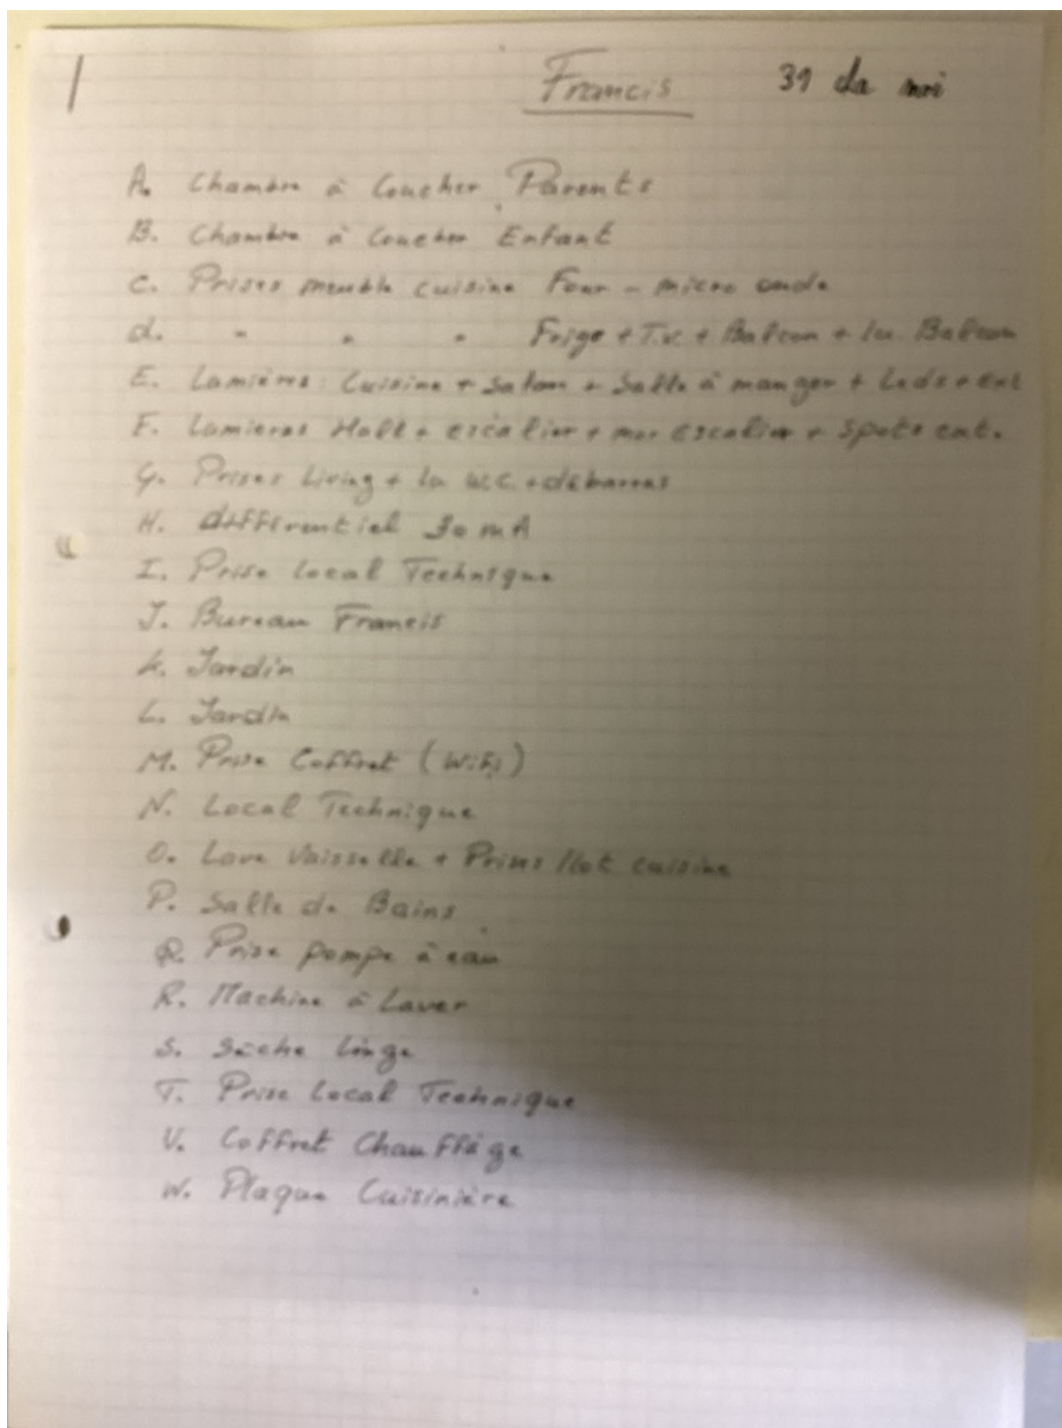 1 Francis 31 da mi
A. Chambre à Coucher Parents
B. Chambre à Coucher Enfant
C. Prises meuble cuisine Four - micro onde
d. " " " Frigo + T.V. + Balcon + lu. Balcon
E. Lumières: Cuisine + Salon + Salle à manger + Leds + Ext
F. Lumieres Hall + escalier + mur Escalier + Spots ext.
G. Prises Living + lu W.C. + débarras
H. différentiel 30 mA
I. Prise Local Technique
J. Bureau Francis
K. Jardin
L. Jardin
M. Prise Coffret (Wifi)
N. Local Technique
O. Lave Vaisselle + Prises Ilot cuisine
P. Salle de Bains
Q. Prise pompe à eau
R. Machine à Laver
S. Sèche linge
T. Prise Local Technique
V. Coffret Chauffage
W. Plaque Cuisinière